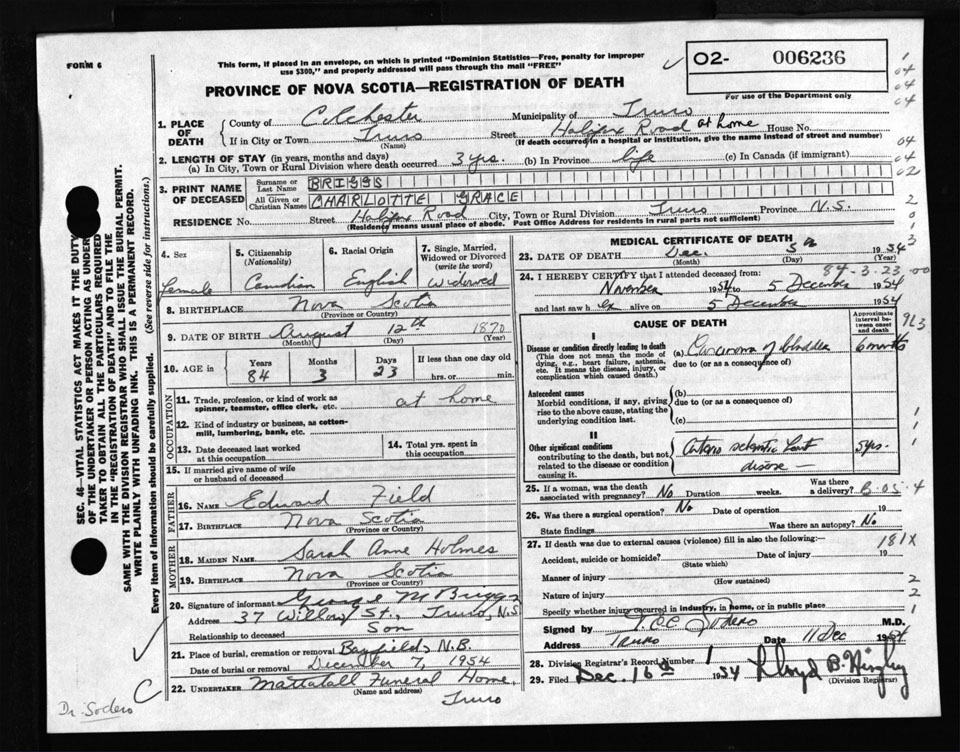 FORM 6
This form, if placed in an envelope, on which is printed "Dominion Statistics—Free, penalty for improper
use $300," and properly addressed will pass through the mail "FREE"
02- 006236
For use of the Department only
PROVINCE OF NOVA SCOTIA—REGISTRATION OF DEATH
1. PLACE OF DEATH
County of Colchester Municipality of Truro
If in City or Town Truro Street Halifax Road at home House No.
(Name) (If death occurred in a hospital or institution, give the name instead of street and number)
2. LENGTH OF STAY (in years, months and days)
(a) In City, Town or Rural Division where death occurred 3 yrs. (b) In Province life (c) In Canada (if immigrant)
3. PRINT NAME OF DECEASED
Surname or Last Name BRIGGS
All Given or Christian Names CHARLOTTE GRACE
RESIDENCE No. Street Halifax Road City, Town or Rural Division Truro Province N.S.
(Residence means usual place of abode. Post Office Address for residents in rural parts not sufficient)
4. Sex female
5. Citizenship (Nationality) Canadian
6. Racial Origin English
7. Single, Married, Widowed or Divorced (write the word) Widowed
8. BIRTHPLACE Nova Scotia
(Province or Country)
9. DATE OF BIRTH August 12th 1870
(Month) (Day) (Year)
10. AGE in Years 84 Months 3 Days 23 If less than one day old hrs. or min.
OCCUPATION
11. Trade, profession, or kind of work as spinner, teamster, office clerk, etc. at home
12. Kind of industry or business, as cotton-mill, lumbering, bank, etc.
13. Date deceased last worked at this occupation
14. Total yrs. spent in this occupation
15. If married give name of wife or husband of deceased
FATHER
16. NAME Edward Field
17. BIRTHPLACE Nova Scotia
(Province or Country)
MOTHER
18. MAIDEN NAME Sarah Anne Holmes
19. BIRTHPLACE Nova Scotia
(Province or Country)
20. Signature of informant George M Briggs
Address 37 Willow St., Truro, N.S.
Relationship to deceased Son
21. Place of burial, cremation or removal Bayfield, N.B.
Date of burial or removal December 7, 1954
22. UNDERTAKER Mattatall Funeral Home,
(Name and address) Truro
MEDICAL CERTIFICATE OF DEATH
23. DATE OF DEATH Dec. 5th 1954
(Month) (Day) (Year)
84-3-23-00
24. I HEREBY CERTIFY that I attended deceased from:
November 1954 to 5 December 1954
and last saw her alive on 5 December 1954
CAUSE OF DEATH
Approximate interval between onset and death
I
Disease or condition directly leading to death
(This does not mean the mode of dying, e.g., heart failure, asthenia, etc. It means the disease, injury, or complication which caused death.)
(a) Carcinoma of bladder 6 months
due to (or as a consequence of)
Antecedent causes
Morbid conditions, if any, giving rise to the above cause, stating the underlying condition last.
(b)
due to (or as a consequence of)
(c)
II
Other significant conditions
contributing to the death, but not related to the disease or condition causing it.
Arterio sclerotic heart 5 yrs.
disease —
25. If a woman, was the death associated with pregnancy? No Duration weeks. Was there a delivery?
26. Was there a surgical operation? No Date of operation 19
State findings Was there an autopsy? No
27. If death was due to external causes (violence) fill in also the following:— 181X
Accident, suicide or homicide? Date of injury 19
(State which)
Manner of injury
(How sustained)
Nature of injury
Specify whether injury occurred in industry, in home, or in public place
Signed by Sodero M.D.
Address Truro Date 11 Dec 1954
28. Division Registrar's Record Number 1
29. Filed Dec. 16th 1954 Lloyd B. Hingley
(Division Registrar)
SEC. 46—VITAL STATISTICS ACT MAKES IT THE DUTY
OF THE UNDERTAKER OR PERSON ACTING AS UNDERTAKER
TO OBTAIN ALL THE PARTICULARS REQUIRED
IN THE "REGISTRATION OF DEATH" AND TO FILE THE
SAME WITH THE DIVISION REGISTRAR WHO SHALL ISSUE THE BURIAL PERMIT.
WRITE PLAINLY WITH UNFADING INK. THIS IS A PERMANENT RECORD.
Every item of information should be carefully supplied. (See reverse side for instructions.)
Dr. Sodero